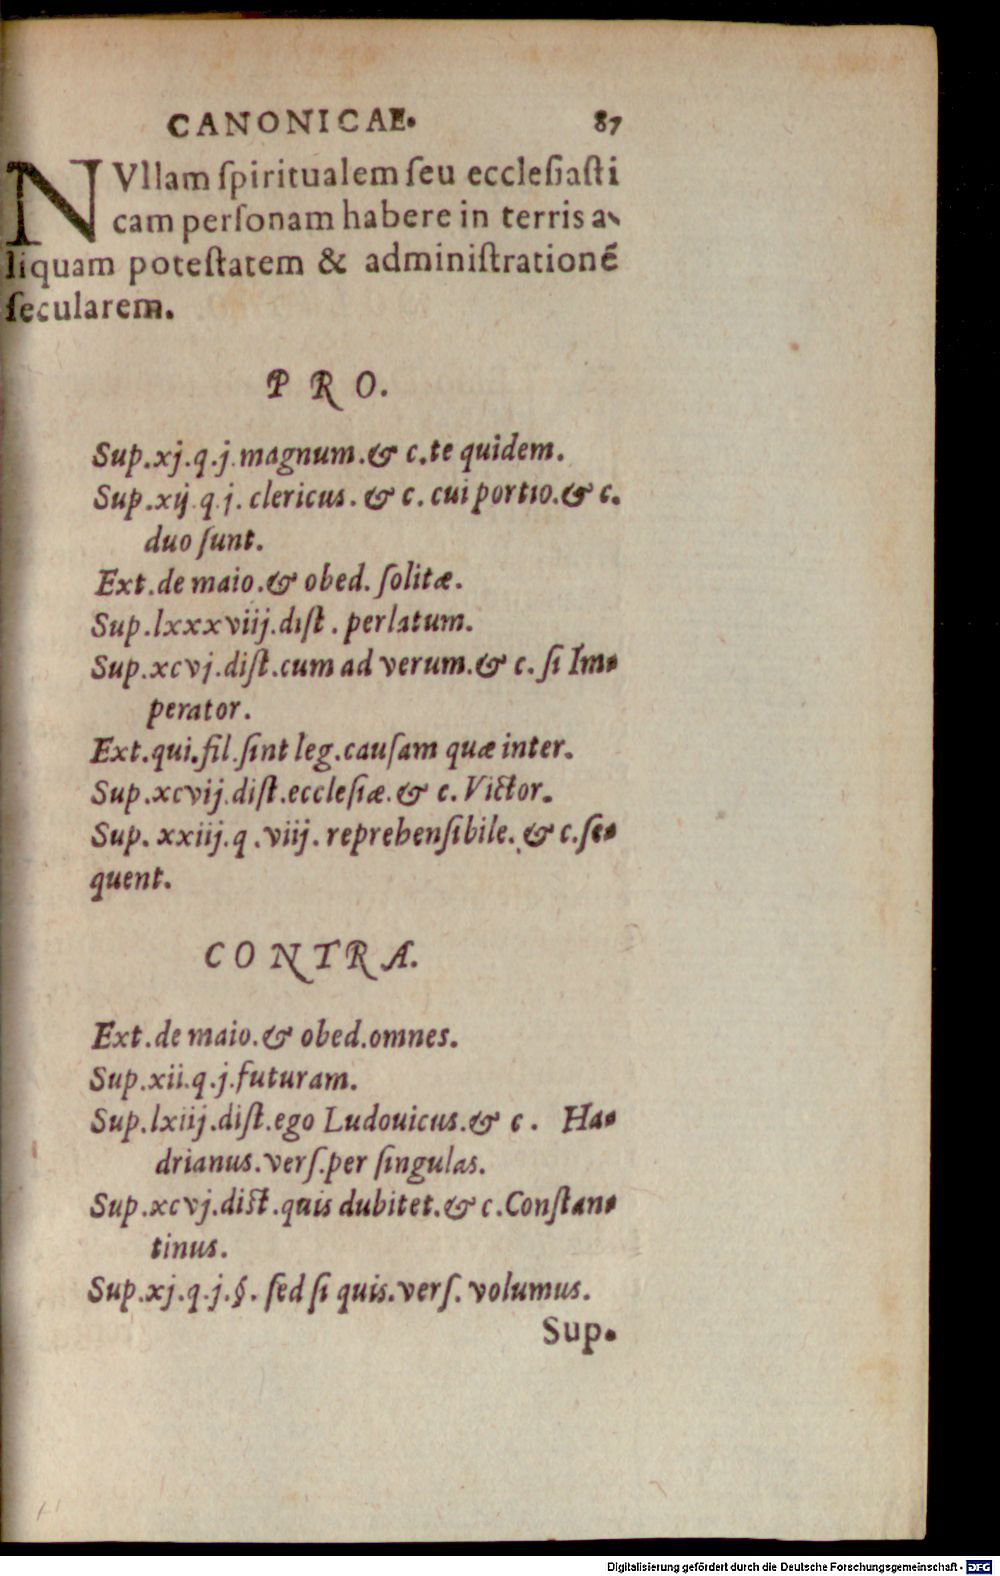 CANONICAE. 87
NVllam ſpiritualem ſeu eccleſiaſti
cam perſonam habere in terris a-
liquam poteſtatem & adminiſtrationẽ
ſecularem.
PRO.
Sup.xj.q.j.magnum.& c.te quidem.
Sup.xij.q.j. clericus. & c. cui portio.& c.
duo ſunt.
Ext.de maio.& obed. ſolitæ.
Sup.lxxxviij.diſt. perlatum.
Sup.xcvj.diſt.cum ad verum.& c. ſi Im-
perator.
Ext.qui.fil.ſint leg.cauſam quæ inter.
Sup.xcvij.diſt.eccleſiæ.& c.Victor.
Sup. xxiij.q.viij. reprehenſibile.& c.ſe-
quent.
CONTRA.
Ext.de maio.& obed.omnes.
Sup.xii.q.j.futuram.
Sup.lxiij.diſt.ego Ludouicus.& c. Ha-
drianus.verſ.per ſingulas.
Sup.xcvj.dict.quis dubitet.& c.Conſtan-
tinus.
Sup.xj.q.j.§. ſed ſi quis.verſ. volumus.
Sup.
Digitalisierung gefördert durch die Deutsche Forschungsgemeinschaft - DFG